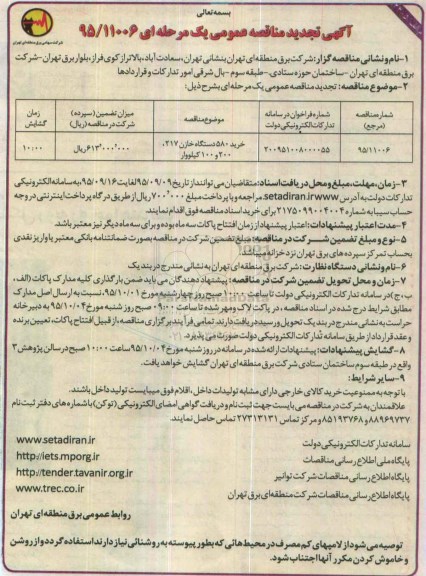 بسمه‌تعالی
آگهی تجدید مناقصه عمومی یک مرحله ای ۹۵/۱۱۰۰۶
شرکت سهامی برق منطقه‌ای تهران
۱-نام و نشانی مناقصه گزار: شرکت برق منطقه ای تهران بنشانی تهران، سعادت آباد، بالاتر از کوی فراز، بلوار برق تهران -شرکت
برق منطقه ای تهران -ساختمان حوزه ستادی-طبقه سوم -بال شرقی امور تدارکات و قراردادها
۲-موضوع مناقصه: تجدید مناقصه عمومی یک مرحله ای بشرح ذیل:
شماره مناقصه (مرجع) شماره فراخوان در سامانه تدارکات الکترونیکی دولت موضوع مناقصه میزان تضمین (سپرده) شرکت در مناقصه (ریال) زمان گشایش
۹۵/۱۱۰۰۶ ۲۰۰۹۵۱۰۰۸۰۰۰۰۵۵ خرید ۵۸۰ دستگاه خازن ۲۱۷، ۲۰۰ و ۱۰۰ کیلووار ۶۱۳٬۰۰۰٬۰۰۰ ریال ۱۰:۰۰
۳-زمان، مهلت، مبلغ و محل دریافت اسناد: متقاضیان می توانند از تاریخ ۹۵/۰۹/۰۹ لغایت ۹۵/۰۹/۱۶، به سامانه الکترونیکی
تدارکات دولت به آدرس setadiran.ir www. مراجعه و با پرداخت مبلغ ۷۰۰٬۰۰۰ ریال از طریق درگاه پرداخت اینترنتی در وجه
حساب سیبا به شماره ۲۱۷۵۰۹۹۰۰۴۰۰۴ برای خرید اسناد مناقصه فوق اقدام نمایند.
۴-مدت اعتبار پیشنهادات: اعتبار پیشنهاد از زمان افتتاح پاکات سه ماه بوده و برای سه ماه دیگر نیز معتبر باشد.
۵-نوع و مبلغ تضمین شرکت در مناقصه: مبلغ تضمین شرکت در مناقصه بصورت ضمانتنامه بانکی معتبر یا واریز نقدی
بحساب تمرکز سپرده های برق تهران نزد خزانه میباشد.
۶-نام و نشانی دستگاه نظارت: شرکت برق منطقه ای تهران به نشانی مندرج در بند یک
۷-زمان و محل تحویل تضمین شرکت در مناقصه: پیشنهاد دهندگان می باید ضمن بارگذاری کلیه مدارک پاکات (الف،
ب، ج) در سامانه تدارکات الکترونیکی دولت تا ساعت ۱۰:۰۰ صبح روز چهارشنبه مورخ ۹۵/۱۰/۰۱، نسبت به ارسال اصل مدارک
مطابق شرایط درج شده در اسناد مناقصه، در پاکت لاک و مهر شده تا ساعت ۰۹:۰۰ صبح روز شنبه مورخ ۹۵/۱۰/۰۴ به دبیرخانه
حراست به نشانی مندرج در بند یک تحویل و رسید دریافت دارند. تمامی فرآیند برگزاری مناقصه از قبیل افتتاح پاکات، تعیین برنده
و عقد قرارداد از طریق سامانه تدارکات الکترونیکی دولت صورت می پذیرد.
۸-گشایش پیشنهادات: پیشنهادات ارائه شده در سامانه در روز شنبه مورخ ۹۵/۱۰/۰۴ ساعت ۱۰:۰۰ صبح در سالن پژوهش ۳
واقع در طبقه سوم ساختمان ستادی شرکت برق منطقه ای تهران گشایش خواهد یافت.
۹-سایر شرایط:
با توجه به ممنوعیت خرید کالای خارجی دارای مشابه تولیدات داخل، اقلام فوق میبایست تولید داخل باشند.
علاقمندان به شرکت در مناقصه می بایست جهت ثبت نام و دریافت گواهی امضای الکترونیکی (توکن) با شماره های دفتر ثبت نام
۸۸۹۶۹۷۳۷ و ۸۵۱۹۳۷۶۸ و مرکز تماس ۲۷۳۱۳۱۳۱ تماس حاصل نمایند.
سامانه تدارکات الکترونیکی دولت www.setadiran.ir
پایگاه ملی اطلاع رسانی مناقصات http://iets.mporg.ir
پایگاه اطلاع رسانی مناقصات شرکت توانیر http://tender.tavanir.org.ir
پایگاه اطلاع رسانی مناقصات شرکت منطقه ای برق تهران www.trec.co.ir
روابط عمومی برق منطقه ای تهران
توصیه می شود از لامپهای کم مصرف در محیط هائی که بطور پیوسته به روشنائی نیاز دارند استفاده گردد و از روشن
و خاموش کردن مکرر آنها اجتناب شود.